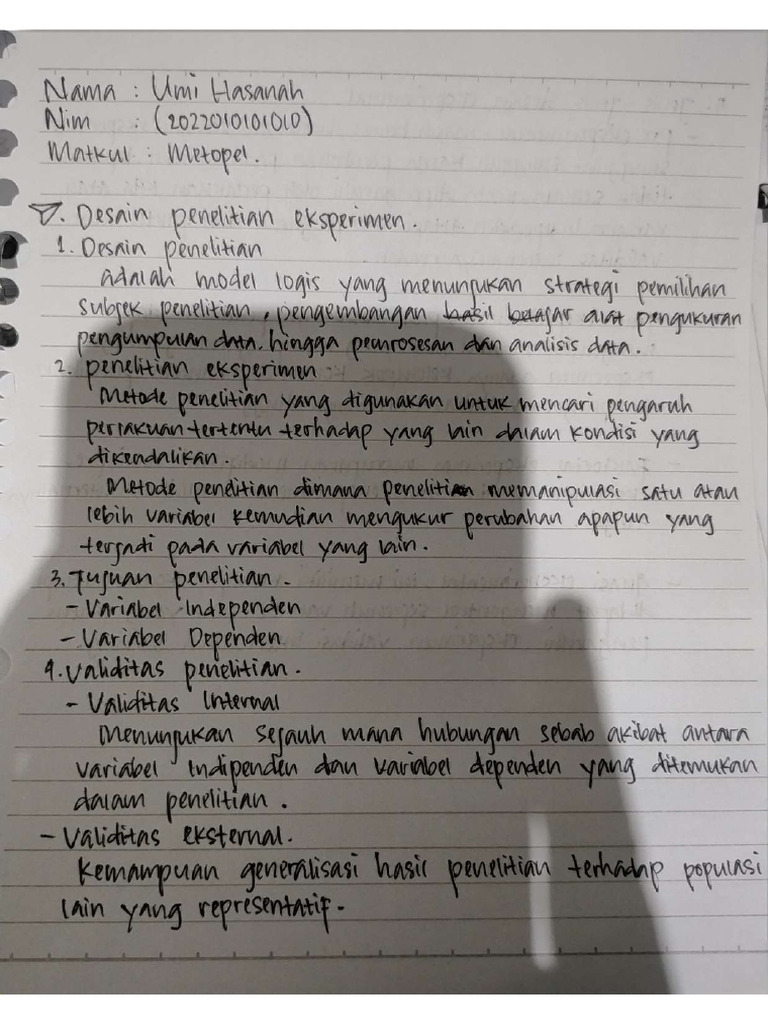 Nama : Umi Hasanah
Nim : (2022010101010)
Matkul : Metopel.
Desain penelitian eksperimen.
1. Desain penelitian
adalah model logis yang menunjukan strategi pemilihan
subjek penelitian, pengembangan hasil belajar alat pengukuran
pengumpulan data, hingga pemrosesan dan analisis data.
2. penelitian eksperimen
Metode penelitian yang digunakan untuk mencari pengaruh
perlakuan tertentu terhadap yang lain dalam kondisi yang
dikendalikan.
Metode penelitian dimana penelitian memanipulasi satu atau
lebih variabel kemudian mengukur perubahan apapun yang
terjadi pada variabel yang lain.
3. Tujuan penelitian.
- Variabel Independen
- Variabel Dependen
4. Validitas penelitian.
- Validitas Internal
Menunjukan sejauh mana hubungan sebab akibat antara
variabel Indipenden dan variabel dependen yang ditemukan
dalam penelitian.
- Validitas eksternal.
Kemampuan generalisasi hasil penelitian terhadap populasi
lain yang representatif.